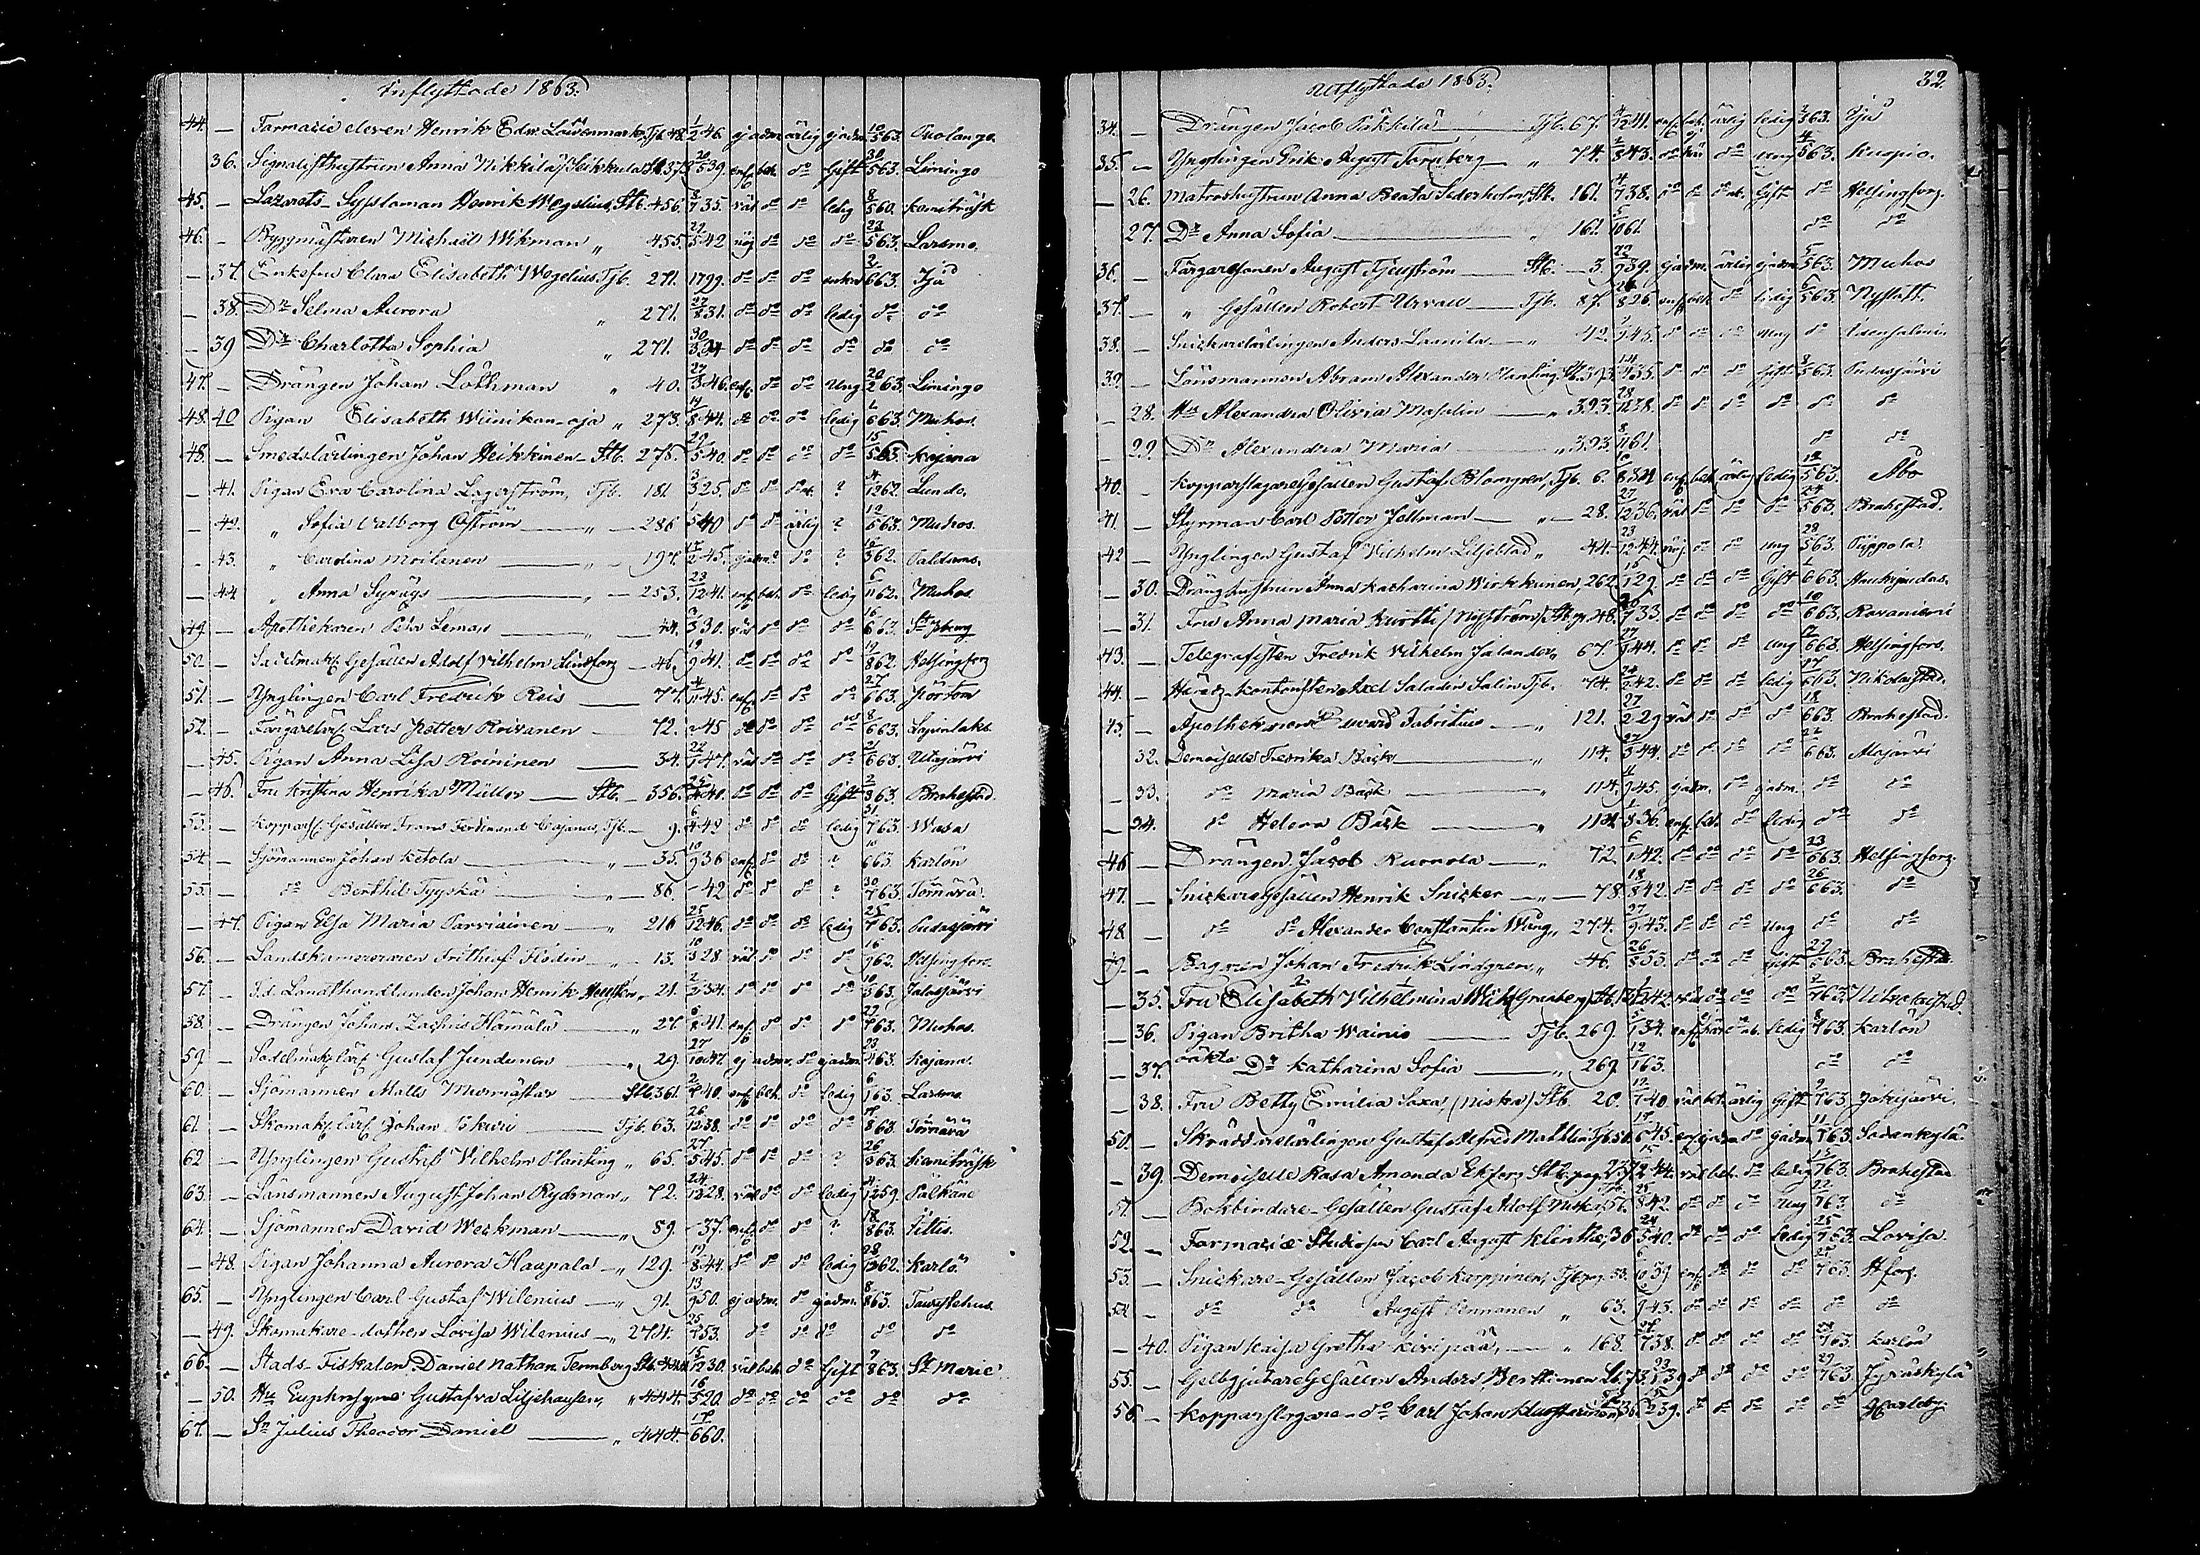 Inflyttade 1863.
44. — Farmacie eleven Henrik Edw. Tjb. 48. 1/2 46. ej adm. ärlig ej adm. 10/5 63. Paolamo.
36. Signalisthustrun Anna Nikkilä 20/5 39. enf. bet. do Gift 30/5 63. Limingo
45. — Lazarets-Sysslaman Henrik Wegelius, Stb. 456. 8/7 35. väl do do ledig 8/5 60. Kemiträsk
46. — Byggmästaren Michaël Wikman „ 455. 27/5 42 nöj. do do do 22/5 63. Larsmo.
— 37. Enkefru Clara Elisabeth Wegelius, Tjb. 271. 1799. do do do enka 2/6 63. Ijå
— 38. Dr Selma Aurora „ 271. 27/8 31. do do do ledig do do
— 39 Dr Charlotta Sophia „ 271. 30/3 34 do do do do do do
47. — Drängen Johan Löthman „ 40. 27/3 46. enf. do do Ung 20/2 63. Limingo
48. 40 Pigan Elisabeth Wiinikan-oja „ 273. 19/8 44. do do do ledig 1/6 63. Muhos.
48. — Smedslärlingen Johan Heikkinen — Stb. 275. 29/5 40. do do do do 15/5 63 Kajana
— 41. Pigan Eva Carolina Lagerström, Tjb. 181 3/3 25. do do ? 4/12 62. Lundo.
— 42. „ Sofia Valborg Öström — „ — 286 1/5 40 do do ärlig ? 12/5 63. Muhos.
— 43. „ Carolina Moilanen — „ — 197. 17/2 45. gadm. do ? 10/3 62. Paldamo.
— 44 „ Anna Syrjys — „ — 253. 23/12 41. enf. bet. do ledig 6/11 62. Muhos
49. — Apothekaren Leman — „ — 44. 3/3 30. väl do do do 16/6 63. St. pburg
50. — Sadelmak. Gesällen Adolf Vilhelm Lindfors — 46. 19/9 41. do do do do 19/8 62. Helsingfors
51. — Ynglingen Carl Fredrik Reis — 77. 4/11 45. enf. do do do 27/6 63. Pörtom
52. — Färgarelärl. Lars Petter Roivanen — 72. 45 do do do do 6 63. Lapinlaks.
— 45. Pigan Anna Lisa Roininen — 34. 22/1 47. väl do do do 2/6 63 Utajärvi
— 46. Fru Kristina Henrika Müller — Stb. — 356. 25/4 40. do do do Gift 2/3 63. Brahestad.
53. — Kopparsl. Gesällen Frans Ferdinand Cajanus, Tjb. — 9. 6/4 42 do do do ledig 31/7 63. Wasa
54. — Sjömannen Johan Ketola — „ — 35. 10/9 36 enf. do do ? 10/6 63. Karlön
55. — do Berthil Tyyskä — „ — 86. — 42 do do do ? 30/7 63. Törnävä.
— 47. Pigan Elsa Maria Parviainen — „ 216 25/12 46. do do do ledig 25/7 63. Pudasjärvi
56. — Landskamereraren Frithiof Flodin — „ — 13. 10/3 28. väl do do do 16/9 62. Helsingfors.
57. — F.d. Landthandlanden Johan Henrik „ 21. 2/2 34. do do do do 10/3 63. Jalasjärvi
58. — Drängen Johan Zachris Hämälä — „ 27. 6/8 41. enf. do do do 27/7 63. Muhos.
59. — Sadelmak. lärl. Gustaf Jundunen — „ 29 27/10 47. ej adm. do gadm. 23/4 63. Kajana.
60. — Sjömannen Matts Murmästar — Stb. 361. 40. enf. bet. do ledig 6/1 63. Larsmo.
61. — Skomak. lärl. Johan — Tjb. 63. 26/12 38. do do do do 8 63. Törnävä
62 — Ynglingen Gustaf Vilhelm Planting „ 65. 27/5 45. do do do ? 26/3 63. Kemiträsk
63. — Länsmannen August Johan Rydman „ 72. 24/12 28. väl do do ledig 4/12 59. Pälkäne
64. — Sjömannen David Weckman — „ 89. — 37. enf. do do ? 18/8 63. Tillis.
— 48. Pigan Johanna Aurora Haapala — „ 129. 19/8 44. do do do ledig 28/12 62. Karlö
65. — Ynglingen Carl Gustaf Wilenius — „ 91. 13/9 50. ej adm. do gadm. 8/8 63. Tavastehus.
— 49. Skomakare-dottren Lovisa Wilenius — „ 274. 25/7 53. do do do do do
66. — Stads-Fiskalen Daniel Nathan Tennberg Stb. 444. 15/12 30. väl bet. do Gift 7/8 63. St. Marie
— 50. Hu Euphrosyne Gustafva Liljehausen, „ 444. 16/5 20. do do do do do do
67. — Sn Julius Theodor Daniel — „ 444. 17/6 60.
Utflyttade 1863. 32.
34. — Drängen Jacob Pikkilä — Tjb. 67. 4/12 41. enf. bet. ärlig ledig 3/3 63. Ijå
35. — Ynglingen Erik August Farnberg — „ 74. 2/8 43. do do ung 4/5 63. Kuopio.
— 26. Matroshustrun Anna Beata Sederholm, Stb. 161. 4/7 38. do do do Gift do Helsingfors.
27. Dr Anna Sofia — 161. 5/10 61. do do
36. — Färgaresonen August Tjeuström — Stb. — 3. 22/9 39. gadm. ärlig gadm. 5/5 63. Muhos
37. — „ Gesällen Robert Urvall — Tjb. 87. 26/8 26. enf. bet. do ledig 6/5 63. Nystatt.
38. — Snickarelärlingen Anders Laanila — „ 42. 9 45. do do do ung do Idensalmi
39. — Länsmannen Abram Alexander Planting Stb. 393. 14/4 35. do do do Gift 8/5 63. Pudasjärvi
— 28. Hu Alexandra Olivia Masalin — „ 393. 28/12 38. do do do do do do
— 29. Dr Alexandra Maria — „ 393. 8/11 61. do do
40. — Kopparslagare Gesällen Gustaf Blomgren, Tjb. 6. 10/8 34 enf. bet. ärlig ledig 12/5 63. Åbo
41. — Styrman Carl Petter Jellman — „ — 28. 27/12 36. väl do do do 24/5 63. Brahestad.
42 — Ynglingen Gustaf Vilhelm Liljeblad „ 44. 23/12 44. nöj. do do ung 28/5 63. Pippola
— 30. Drängshustrun Anna Katharina Wirkkunen, 262. 15/1 29. do do do Gift 1/6 63. Haukipudas.
— 31. Fru Anna Maria Kurtti (Nyström) Stb. pg. 48. 7 33. do do do do 10/6 63. Rovaniemi
43. — Telegrafisten Fredrik Vilhelm Jalander „ 67. 27/1 44. do do do ung 12/6 63. Helsingfors.
44. — Härads-kontoristen Axel Saladin Salin Tjb. 74. 28/2 42. do do do ledig 17/6 63. Nikolaistad.
45. — Apothekaren Edward Fabritius — „ 121. 27/2 29 väl do do do 18/6 63. Brahestad.
32. Demoiselle Fredrika Bäck — „ 114. 27/3 44. do do do do 22/6 63. Alajärvi
— 33. do Maria Bäck — „ 114. 4/9 45. gadm. do gadm. do do
— 34. do Helena Bäck — „ 114. 1/8 36. enf. bet. do ledig do do
46 — Drängen Jacob Ruonola — „ 72. 6/1 42. do do do do 23/6 63. Helsingfors.
47. — Snickare Gesällen Henrik Snicker — „ — 78. 18/8 42. do do do do 26/6 63. do
48 — do do Alexander Constantin Wäng „ 274. 27/9 43. do do do ung do do
49. — Bagaren Johan Fredrik Lindgren, „ 46. 26/8 33. do do do Gift 29/6 63. Brahestad
— 35. Fru Elisabeth Vilhelmina Wik (Graaber) Stb. 42. väl do do do 2/7 63. Nikolaistad.
— 36. Pigan Britha Wainio — Tjb. 269. 5/1 34. enf. ledig 8/7 63. Karlön
— 37. oäkta Dr Katharina Sofia — „ 269. 12/1 63. do do
— 38. Fru Betty Emilia Saxa, (Niska) Stb 20. 12/7 40. väl bet. ärlig Gift 9/7 63. Jokijärvi.
50. — Skräddarelärlingen Gustaf Alfred Mathlin Tjb. 56. 15/6 45. enf. gadm. do gadm. 11/7 63. Sodankylä.
— 39. Demoiselle Rosa Amanda Ekfors Stb. pag. 44. väl bet. do ledig 13/7 63. Brahestad
51. — Bokbindare-Gesällen Gustaf Adolf Niska, 56. 25/8 42. do do do ung 22/7 63. do
52. — Farmacie Studiosus Carl August Klinthe, 36 24/5 40. do do do ledig 25/7 63. Lovisa.
53. — Snickare-Gesällen Jacob Karppinen, Tjb. pg. 53. 6/10 39. enf. do do do 25/7 63. Hfors.
54 — do do August Pennanen „ 63. 9 43. do do do do do do
— 40. Pigan Kaisa Gretha Kiripää, — „ 168. 7 38. do do do do 28/7 63. Karlön
55. — Gelbgjutare Gesällen Anders Berttinen St. 73. 23/1 39 do do do do 29/7 63. Jyväskylä
56. — Kopparslagare-do Carl Johan 36. 15/2 39. do do do do do GKarleby.